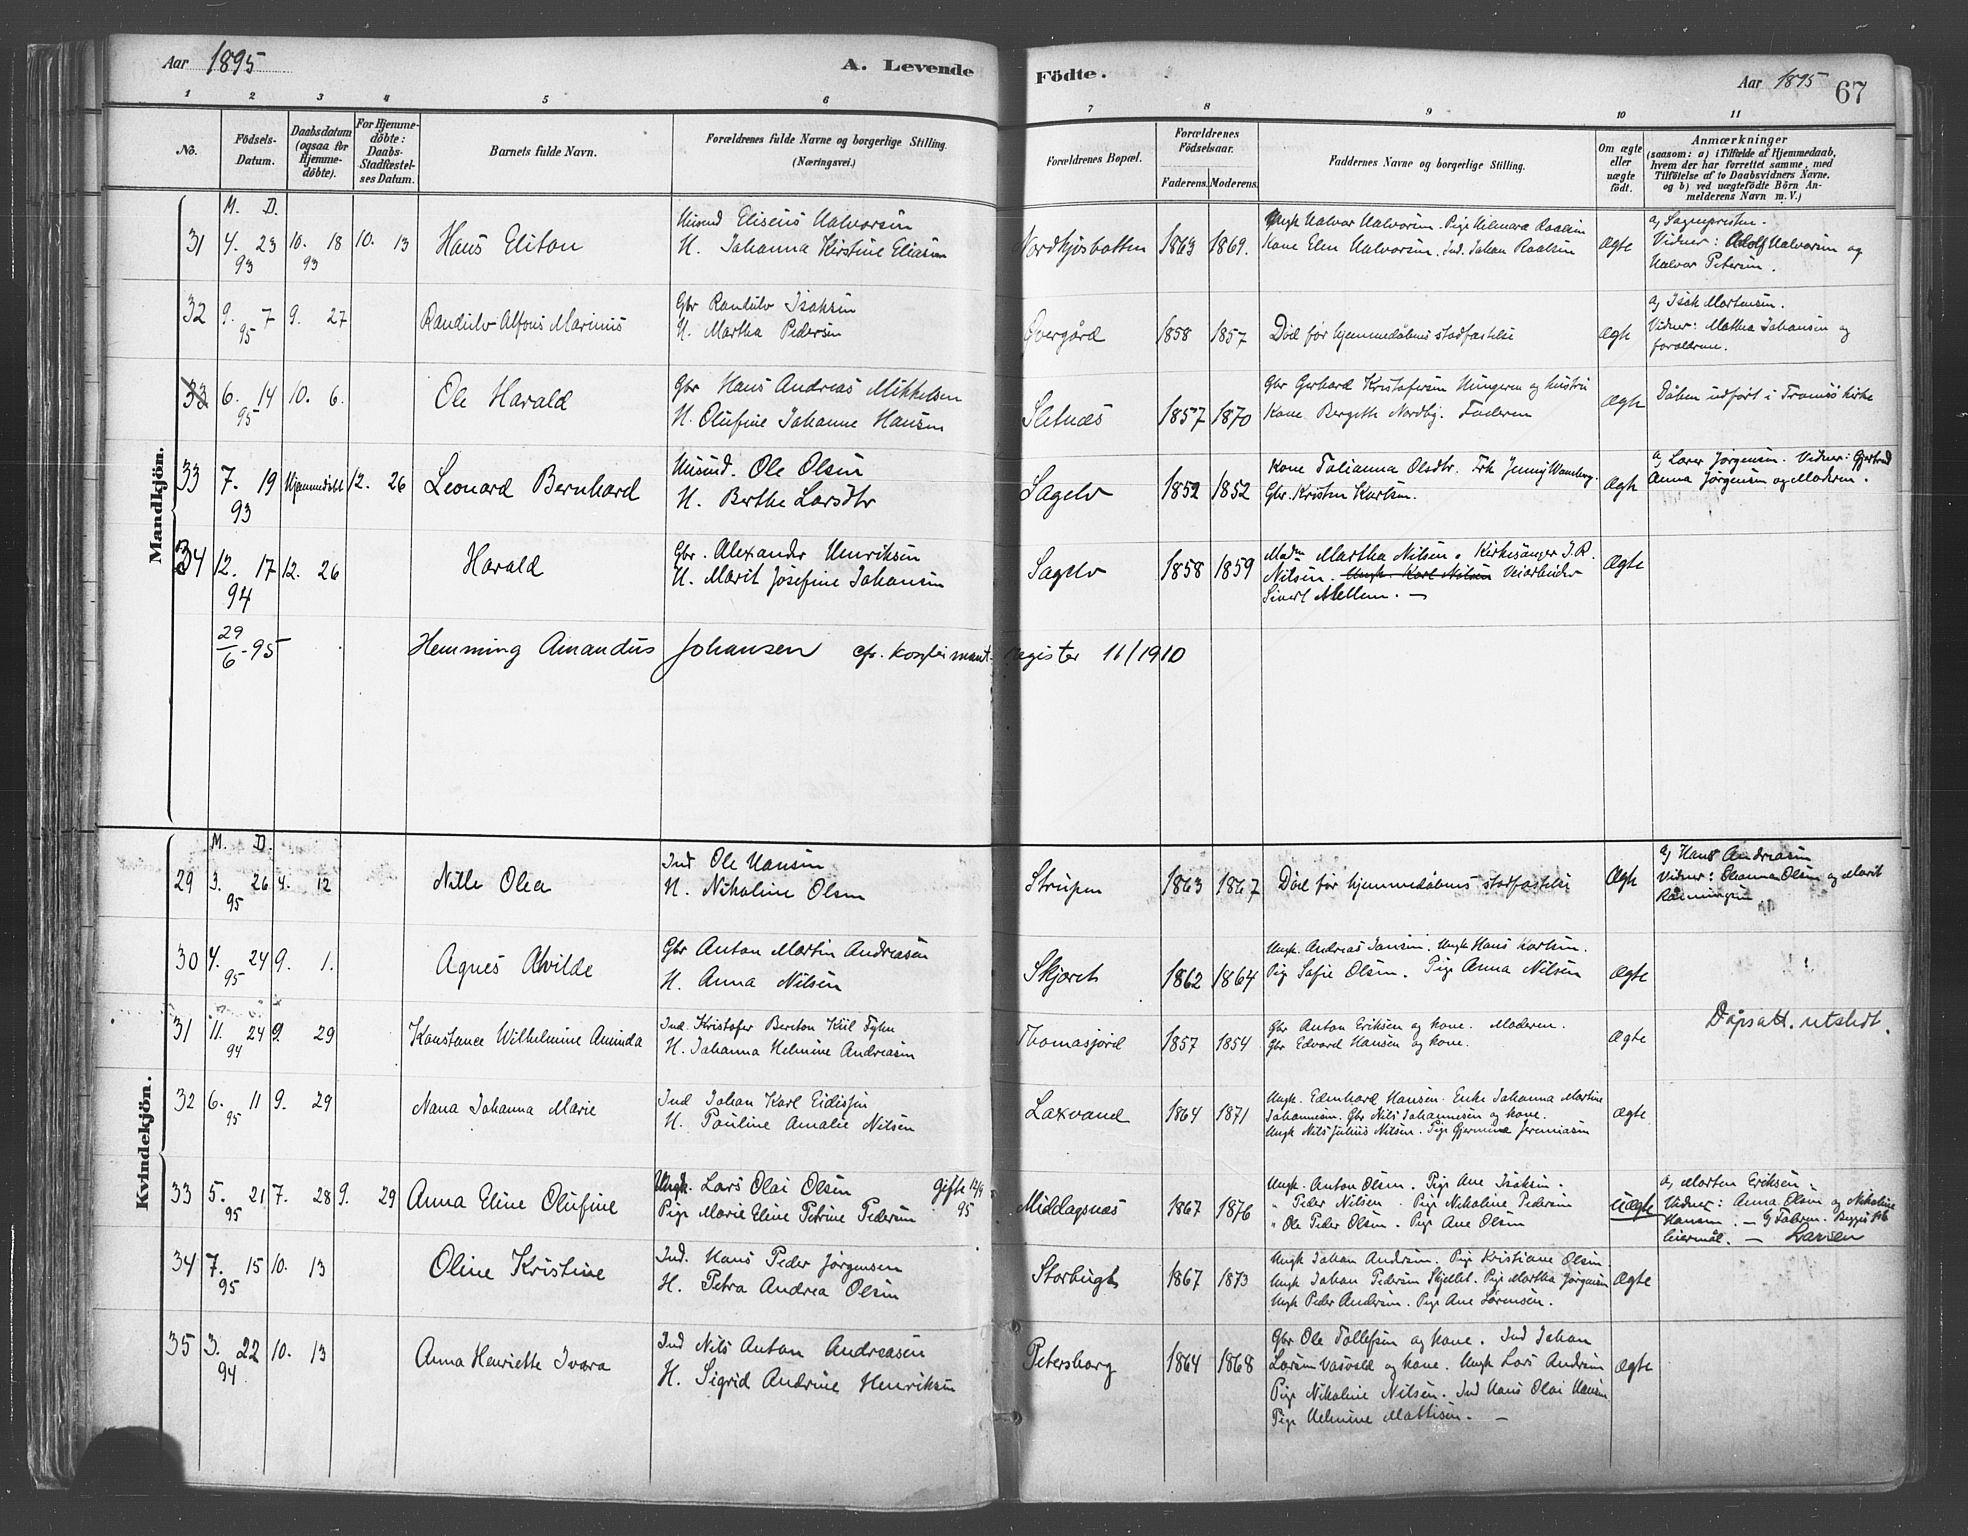 Aar 1895
A. Levende Födte.
Aar 1895 67
1 2 3 4 5 6 7 8 9 10 11
No.
Födsels-Datum.
Daabsdatum (ogsaa for Hjemme-döbte).
For Hjemme-döbte: Daabs-Stadfæstel-ses Datum.
Barnets fulde Navn.
Forældrenes fulde Navne og borgerlige Stilling. (Næringsvei.)
Forældrenes Bopæl.
Forældrenes Födselsaar.
Faderens. Moderens.
Faddernes Navne og borgerlige Stilling.
Om ægte eller uægte födt.
Anmærkninger
(saasom: a) i Tilfælde af Hjemmedaab,
hvem der har forrettet samme, med
Tilföielse af to Daabsvidners Navne.
og b) ved uægtefödte Börn An-
melderens Navn m. V.)
Mandkjön.
M. D.
31 4. 23 93 10. 18 93 10. 13 Hans Eliton
Husmd Eliseus Halvorsen
H. Johanna Kirstine Eliasen
Nordkjosbotten 1863 1869.
Ungk Halvor Halvorsen. Pige Helmara Raaksen
Kone Elen Halvorsen. Ind. Johan Raaksen
Ægte
a) Sogneprsten.
Vidner: Adolf Halvorsen og
Halvor Petersen.
32 9. 7 95 9. 27 Randulv Alfons Marinus
Gbr Randulv Isaksen
H. Martha Pedersen
Øvergård 1858 1857
Død før hjemmedåbens stadfæstelse
Ægte
a) Isak Mortensen.
Vidner: Mathea Johansen og
forældrene.
33 6. 14 95 10. 6. Ole Harald
Gbr Hans Andreas Mikkelsen
H. Olufine Johanne Hansen
Sletnæs 1857 1870
Gbr Gerhard Kristofersen Hungeren og hustru
Kone Bergith Nordby. Faderen
Ægte
Dåben udført i Tromsø kirke
33 7. 19 93 Hjemmedøbt 12. 26 Leonard Bernhard
Husmd. Ole Olsen
H. Berthe Larsdtr
Sagelv 1852 1852
Kone Tolianna Olsdtr. Frk Jenny Wanneberg.
Gbr. Kristen Karlsen.
Ægte
a) Lorer Jørgensen. Vidner: Gjertrud
Anna Jørgensen og Moderen.
34 12. 17 94 12. 26 Harald
Gbr. Alexander Henriksen
H. Marit Josefine Johansen
Sagelv 1858 1859
Madm Martha Nilsen. Kirkesanger J. R.
Nilsen. Ungk. Karl Nilsen Veiarbeider
Sivert Mellem. —
Ægte
29/6-95 Hemming Amandus Johansen cfr. konfirmant register 11/1910
Kvindekjön.
M. D.
29 3. 26 95 4. 12 Nille Olea
Ind Ole Hansen
H. Nikoline Olsen
Strupen 1863 1867
Død før hjemmedåbens stadfæstelse
Ægte
a) Hans Andreasen
Vidner: Johanna Olsen og Marit
Rasmussen
30 4. 24 95 9. 1. Agnes Alvilde
Gbr Anton Martin Andreasen
H. Anna Nilsen
Skjoret 1862 1864
Ungk. Andreas Jansen. Ungk Hans Karlsen.
Pige Sofie Olsen. Pige Anna Nilsen
Ægte
31 11. 24 94 9. 29 Konstance Wilhelmine Aminda
Ind. Kristofer Berston Kiil Fyhn
H. Johanna Helmine Andreasen
Thomasjord 1857 1854
Gbr Anton Eriksen og kone. Moderen.
Gbr Edvard Hansen og kone.
Ægte
Dåpsatt. utstedt.
32 6. 11 95 9. 29 Nana Johanna Marie
Ind Johan Karl Eidissen
H. Pauline Amalie Nilsen
Laxvand 1864 1871
Ungk. Edenhard Hansen. Enke Johanna Martine
Johannesen. Gbr Nils Johannesen og kone.
Ungk Nils Julius Nilsen. Pige Gjermine Jeremiasen
Ægte
33 5. 21 95 7. 28 9. 29 Anna Eline Olufine
Ungk. Lars Olai Olsen
Pige Marie Eline Petrine Pedersen
Gifte 14/9 95
Middagsnæs 1867 1876
Ungk. Anton Olsen. Pige Ane Isaksen.
" Peder Nilsen. Pige Nikoline Pedersen
" Ole Peder Olsen. Pige Ane Olsen
Uægte
a) Morten Eriksen.
Vidner: Anna Olsen og Nikoline
Hansen. — b) Fabren. Begges 1ste
leiermål. — Larsen
34 7. 15 95 10. 13 Oline Kristine
Ind. Hans Peder Jørgensen
H. Petra Andrea Olsen
Storbugt 1867 1873
Ungk Johan Andersen. Pige Kristiane Olsen.
Ungk Johan Pedersen Skjellet. Pige Martha Jørgensen
Ungk Peder Andersen. Pige Ane Sørensen.
Ægte
35 3. 22 94 10. 13 Anna Henriette Ivara
Ind Nils Anton Andreasen
H. Sigrid Andrine Henriksen
Petersborg 1864 1868
Gbr Ole Tollefsen og kone. Ind Johan
Larsen Vasvold og kone. Ungk Lars Andersen
Pige Nikoline Nilsen. Ind Hans Olai Hansen
Pige Helmine Mattisen. —
Ægte